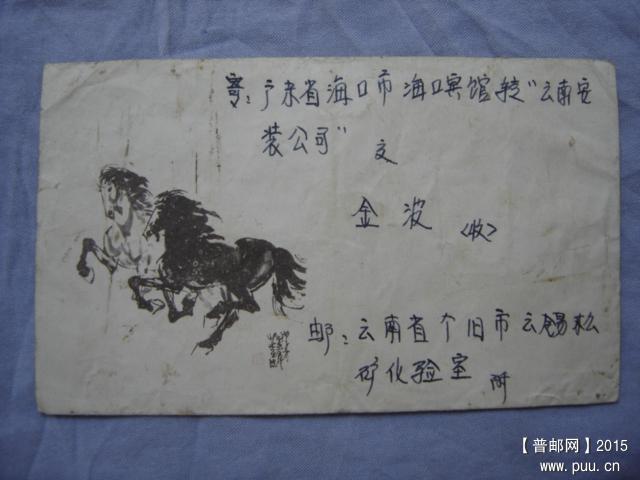 寄：广东省海口市海口宾馆转“云南安
装公司”
交
金波
<收>
邮：云南省个旧市云锡松
矿化验室 附
【普邮网】2015
www.puu.cn